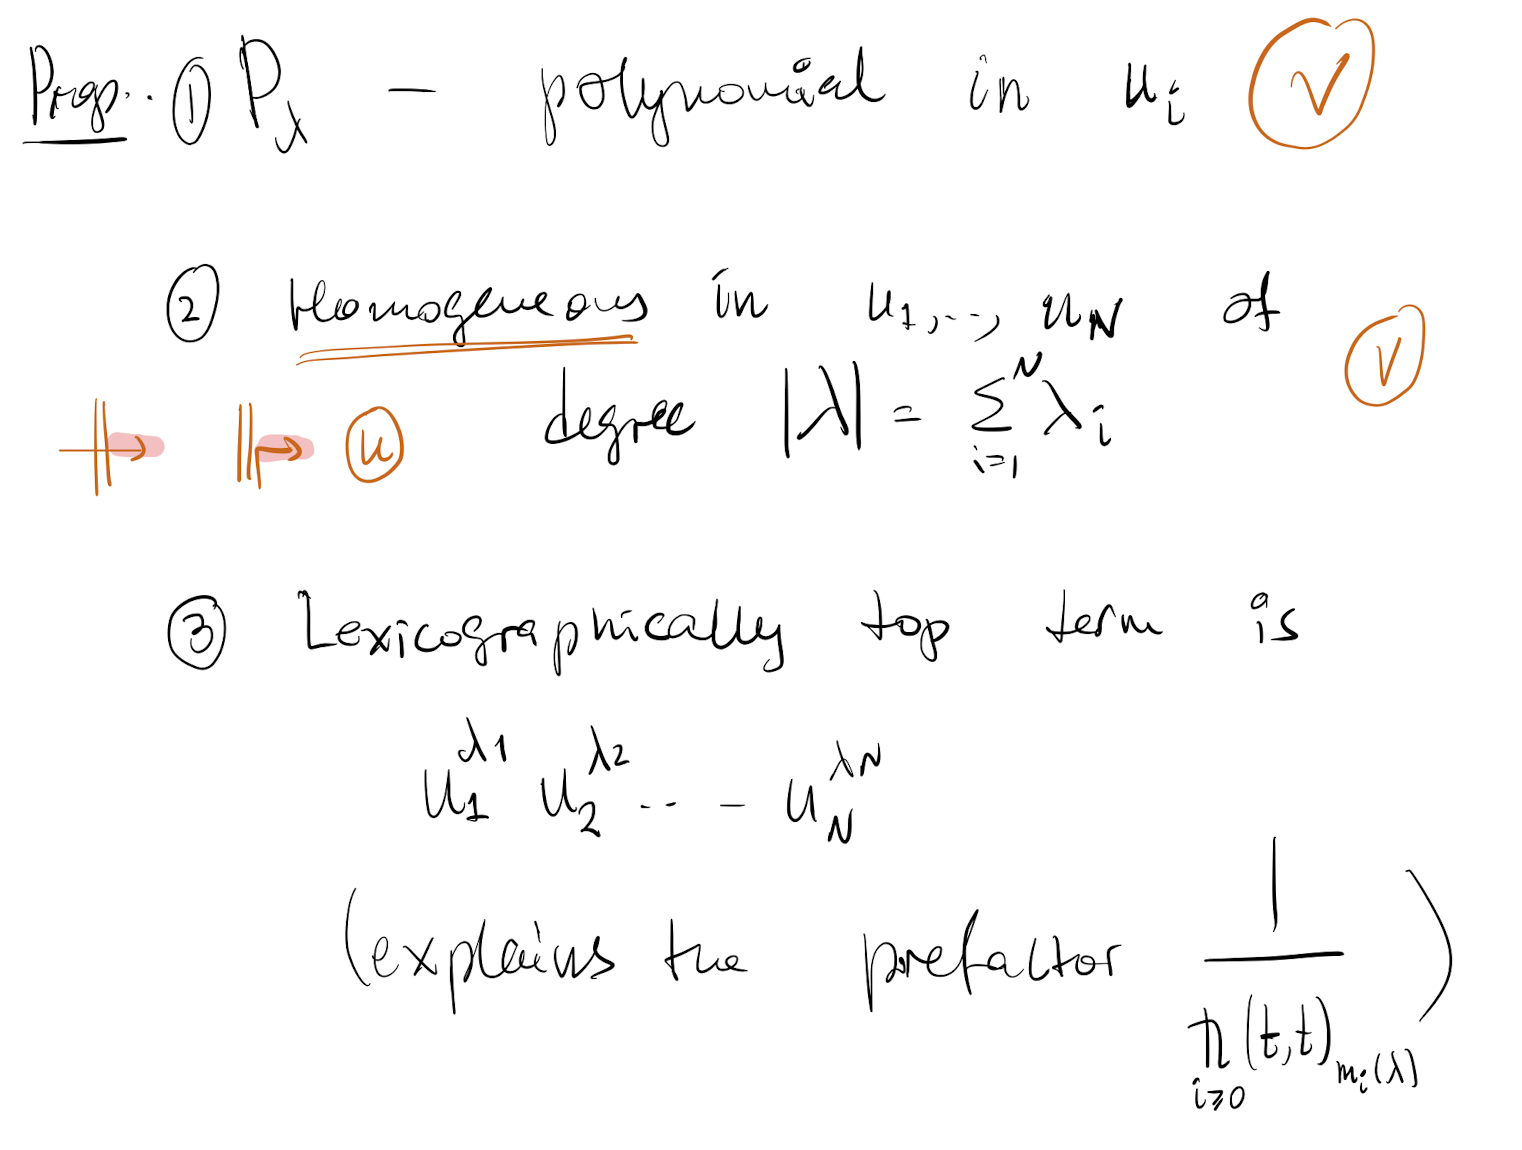 Prop. ① P_λ — polynomial in u_i ✓
② Homogeneous in u_1, ..., u_N of
degree |λ| = Σ_{i=1}^{N} λ_i ✓
u
③ Lexicographically top term is
u_1^{λ_1} u_2^{λ_2} ... u_N^{λ_N}
(explains the prefactor 1 / ∏_{i≥0} (t,t)_{m_i(λ)})